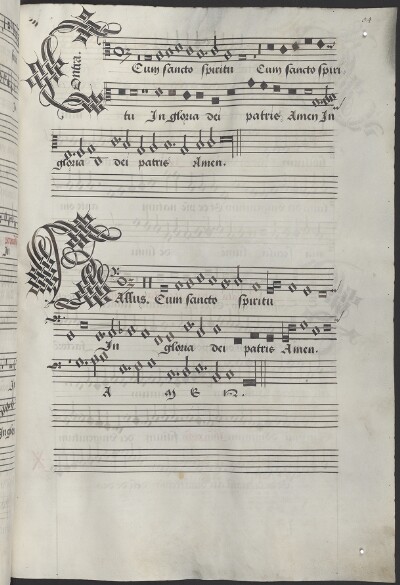 Contra.
Cum sancto spiritu Cum sancto spiri
tu In gloria dei patris Amen In
gloria dei patris Amen.
Bassus. Cum sancto spiritu
In gloria dei patris Amen.
A M E N.